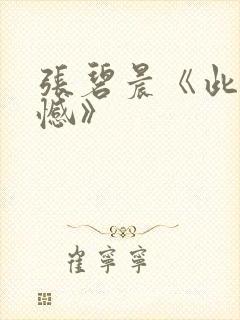 張碧晨《此
憾》
崔寧寧